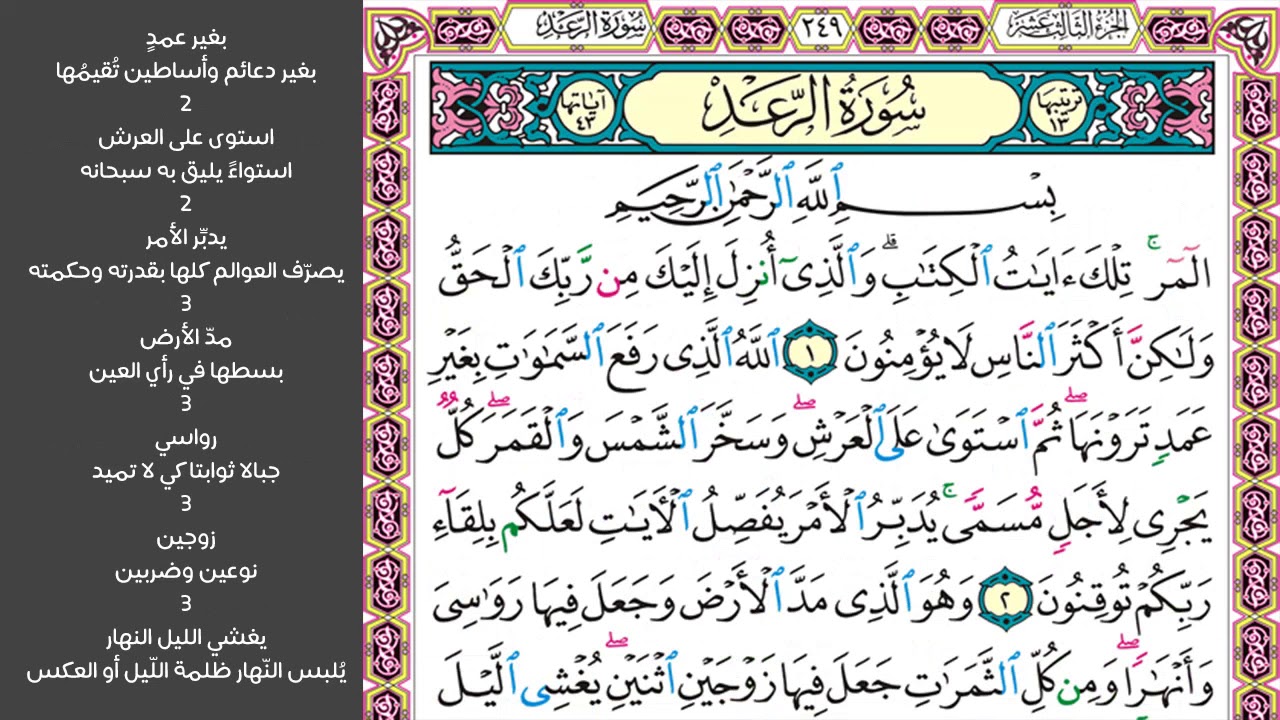 الجزء الثالث عشر
٢٤٩
سورة الرعد
ترتيبها ١٣
سُورَةُ الرَّعْدِ
آياتها ٤٣
بِسْمِ ٱللَّهِ ٱلرَّحْمَٰنِ ٱلرَّحِيمِ
الٓمٓرۚ تِلْكَ ءَايَٰتُ ٱلْكِتَٰبِۗ وَٱلَّذِىٓ أُنزِلَ إِلَيْكَ مِن رَّبِّكَ ٱلْحَقُّ
وَلَٰكِنَّ أَكْثَرَ ٱلنَّاسِ لَا يُؤْمِنُونَ ١ ٱللَّهُ ٱلَّذِى رَفَعَ ٱلسَّمَٰوَٰتِ بِغَيْرِ
عَمَدٍ تَرَوْنَهَاۖ ثُمَّ ٱسْتَوَىٰ عَلَى ٱلْعَرْشِۖ وَسَخَّرَ ٱلشَّمْسَ وَٱلْقَمَرَۖ كُلٌّ
يَجْرِى لِأَجَلٍ مُّسَمًّىۚ يُدَبِّرُ ٱلْأَمْرَ يُفَصِّلُ ٱلْءَايَٰتِ لَعَلَّكُم بِلِقَآءِ
رَبِّكُمْ تُوقِنُونَ ٢ وَهُوَ ٱلَّذِى مَدَّ ٱلْأَرْضَ وَجَعَلَ فِيهَا رَوَٰسِىَ
وَأَنْهَٰرًاۖ وَمِن كُلِّ ٱلثَّمَرَٰتِ جَعَلَ فِيهَا زَوْجَيْنِ ٱثْنَيْنِۖ يُغْشِى ٱلَّيْلَ
بغير عمدٍ
بغير دعائم وأساطين تُقيمُها
2
استوى على العرش
استواءً يليق به سبحانه
2
يدبِّر الأمر
يصرّف العوالم كلها بقدرته وحكمته
3
مدّ الأرض
بسطها في رأي العين
3
رواسي
جبالا ثوابتا كي لا تميد
3
زوجين
نوعين وضربين
3
يغشي الليل النهار
يُلبس النّهار ظلمة اللّيل أو العكس